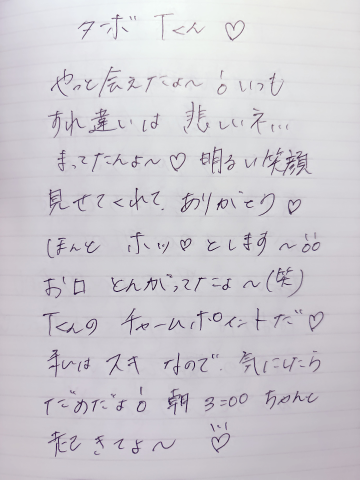 ターボ Tくん ♡
やっと会えたよ〜!いつも
すれ違いは 悲しいネ...
まってたんよ〜♡ 明るい笑顔
見せてくれて、ありがとう♡
ほんと ホッ♡とします〜!!
お口 とんがってたよ〜(笑)
Tくんの チャームポイントだ♡
スキ なので、気にしたら
だめだよ! 朝 3:00 ちゃんと
起きてよ〜 ♡